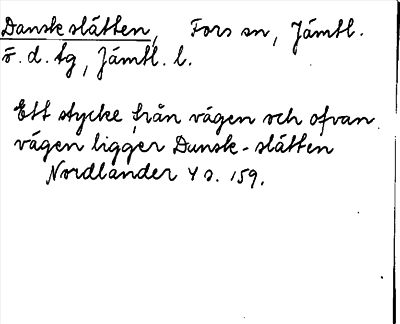 Danskslåtten, Fors sn, Jämtl.
ö. d. tg, Jämtl. l.
Ett stycke från vägen och ofvan
vägen ligger Dansk-slåtten
Nordlander 4 s. 159.